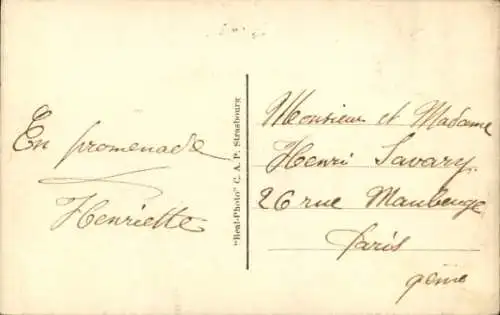 En promenade
Henriette
"Real-Photo" C. A. P. Strasbourg
Monsieur et Madame
Henri Savary
26 rue Maubeuge
Paris